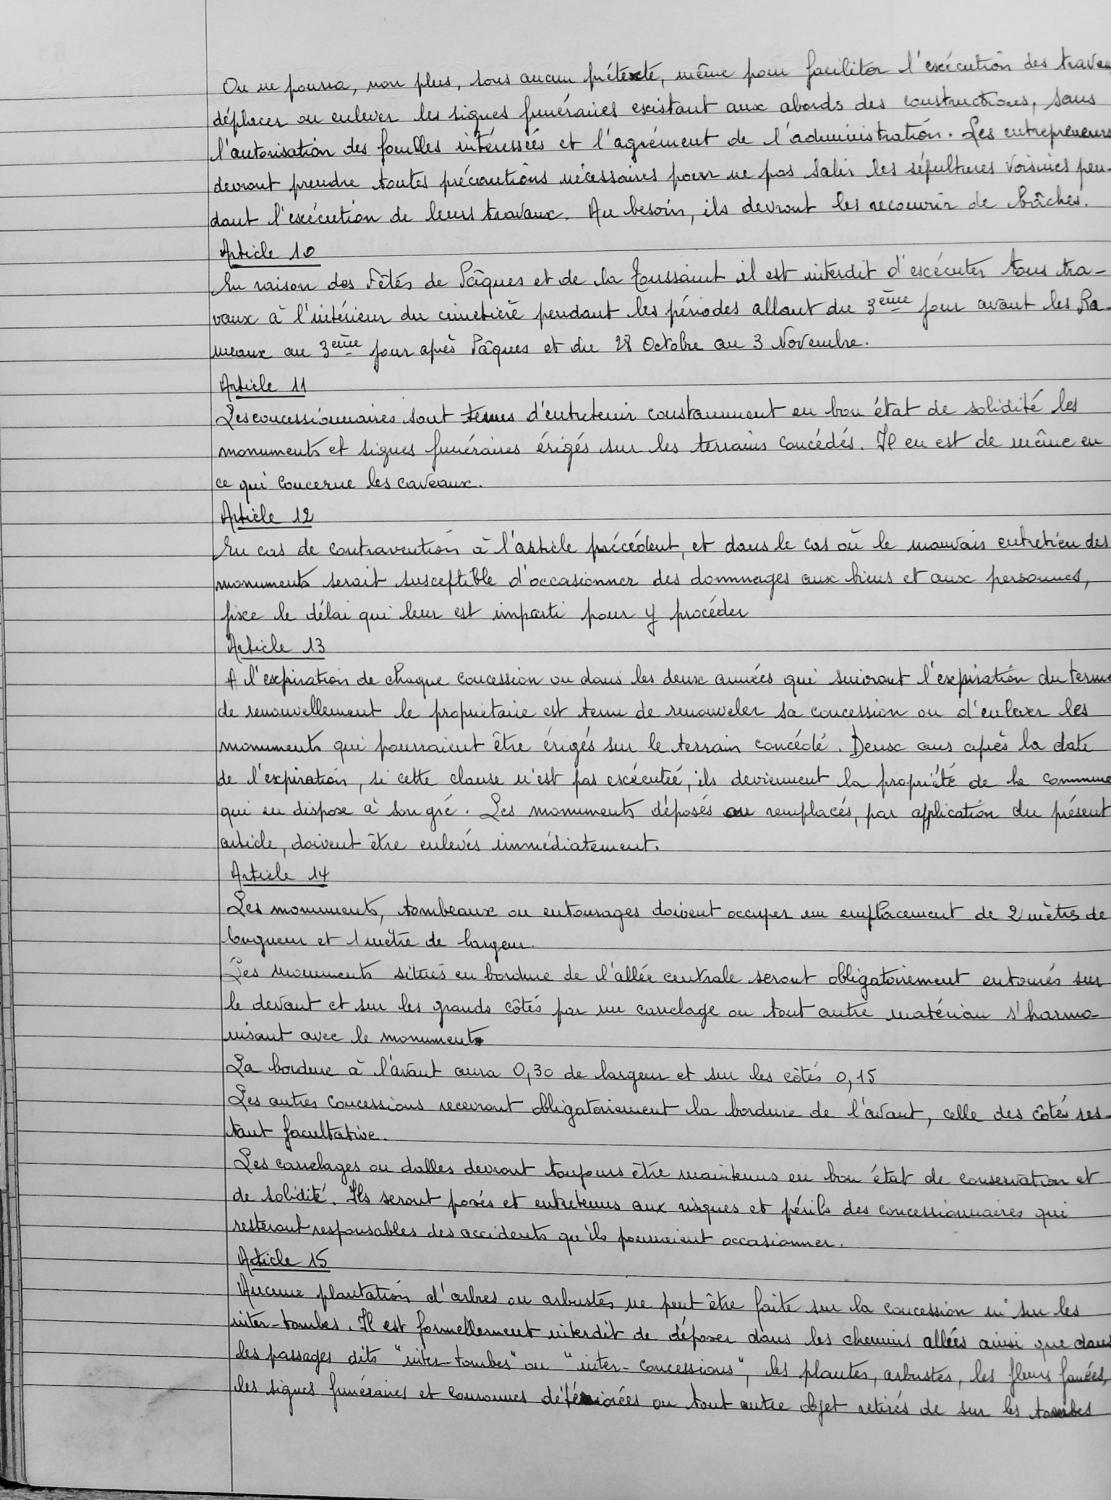 On ne pourra, non plus, sous aucun prétexte, même pour faciliter l'exécution des travaux
déplacer ou enlever les signes funéraires existant aux abords des constructions, sans
l'autorisation des familles intéressées et l'agrément de l'administration. Les entrepreneurs
devront prendre toutes précautions nécessaires pour ne pas salir les sépultures voisines pen-
dant l'exécution de leurs travaux. Au besoin, ils devront les recouvrir de bâches.
Article 10
En raison des Fêtes de Pâques et de la Toussaint il est interdit d'exécuter tous tra-
vaux à l'intérieur du cimetière pendant les périodes allant du 3ème jour avant les Ra-
meaux au 3ème jour après Pâques et du 28 Octobre au 3 Novembre.
Article 11
Les concessionnaires sont tenus d'entretenir constamment en bon état de solidité les
monuments et signes funéraires érigés sur les terrains concédés. Il en est de même en
ce qui concerne les caveaux.
Article 12
En cas de contravention à l'article précédent, et dans le cas où le mauvais entretien des
monuments serait susceptible d'occasionner des dommages aux biens et aux personnes,
fixe le délai qui leur est imparti pour y procéder
Article 13
A l'expiration de chaque concession ou dans les deux années qui suivront l'expiration du terme
de renouvellement le propriétaire est tenu de renouveler sa concession ou d'enlever les
monuments qui pourraient être érigés sur le terrain concédé. Deux ans après la date
de l'expiration, si cette clause n'est pas exécutée, ils deviennent la propriété de la commune
qui en dispose à son gré. Les monuments déposés ou remplacés, par application du présent
article, doivent être enlevés immédiatement.
Article 14
Les monuments, tombeaux ou entourages doivent occuper un emplacement de 2 mètres de
longueur et 1 mètre de largeur.
Les monuments situés en bordure de l'allée centrale seront obligatoirement entourés sur
le devant et sur les grands côtés par un carrelage ou tout autre matériau s'harmo
nisant avec le monument.
La bordure à l'avant aura 0,30 de largeur et sur les côtés 0,15
Les autres concessions recevront obligatoirement la bordure de l'avant, celle des côtés res-
tant facultative.
Les carrelages ou dalles devront toujours être maintenus en bon état de conservation et
de solidité. Ils seront posés et entretenus aux risques et périls des concessionnaires qui
resteront responsables des accidents qu'ils pourraient occasionner.
Article 15
Aucune plantation d'arbres ou arbustes ne peut être faite sur la concession ni sur les
inter-tombes. Il est formellement interdit de déposer dans les chemins allées ainsi que dans
les passages dits "inter-tombes" ou "inter-concessions", les plantes, arbustes, les fleurs fanées,
les signes funéraires et couronnes détériorées ou tout autre objet retirés de sur les tombes